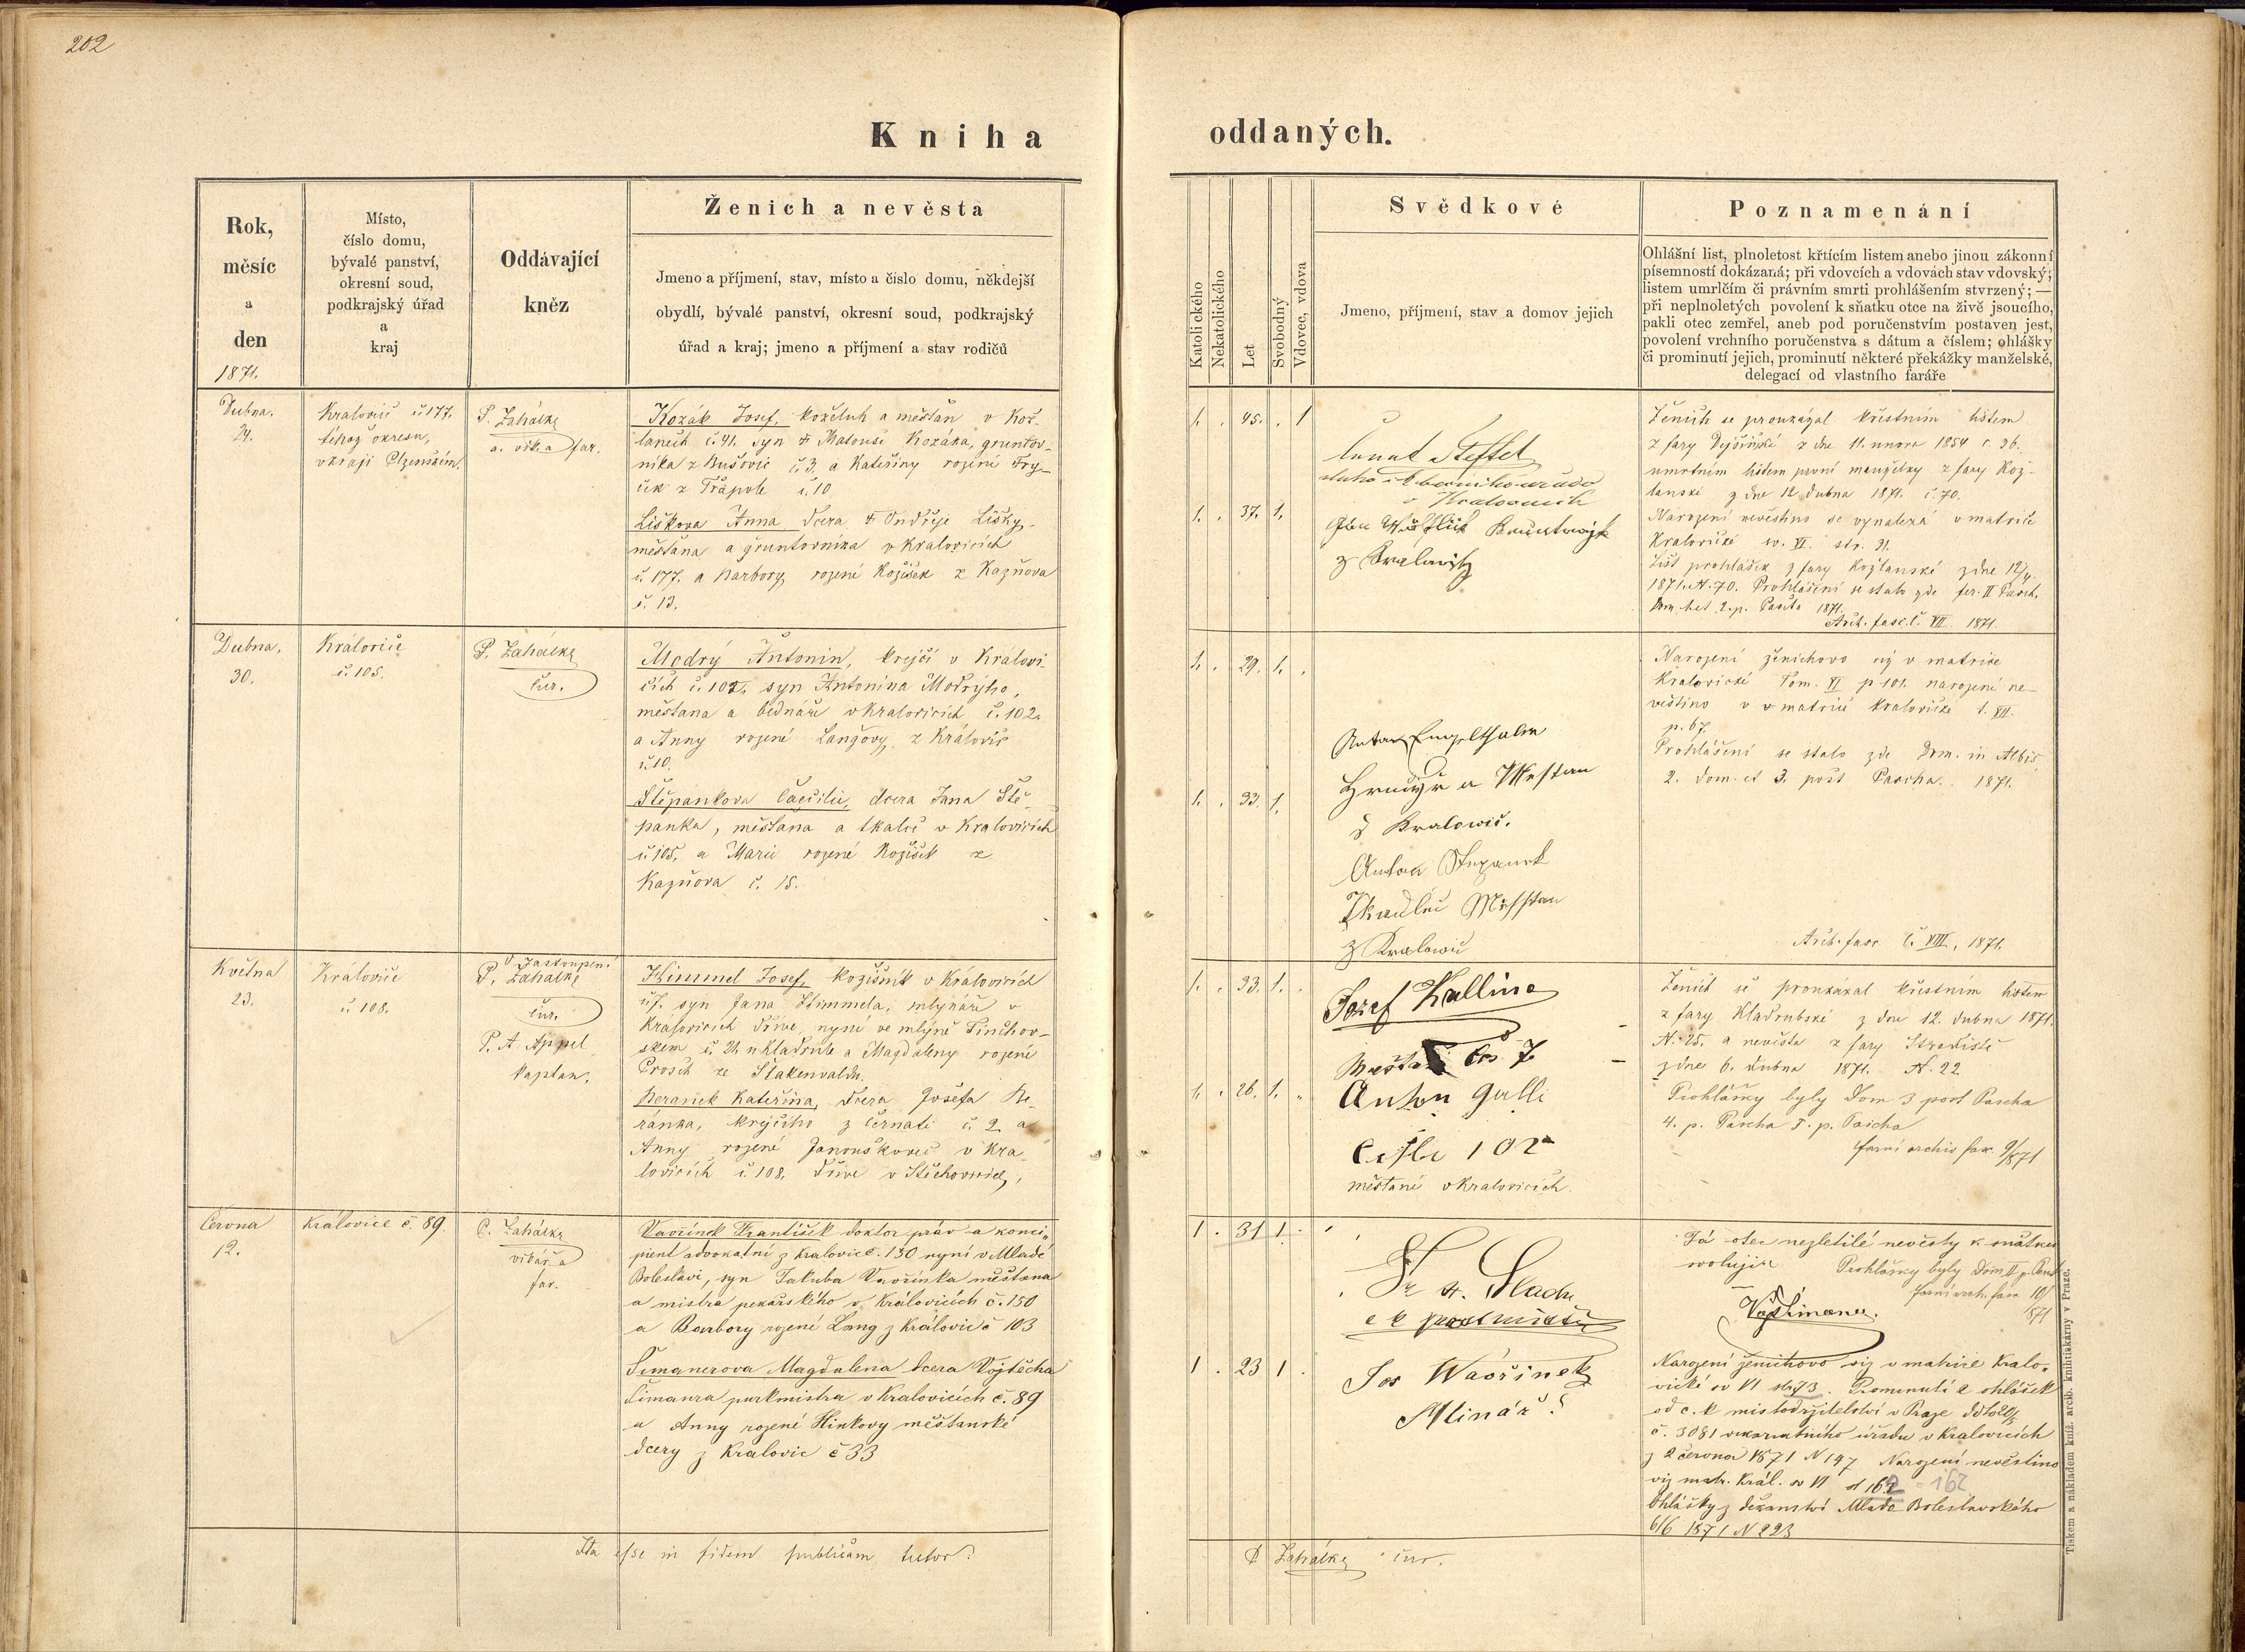 202
Kniha oddaných.
Rok,
měsíc
a
den
1871.
Místo,
číslo domu,
bývalé panství,
okresní soud,
podkrajský úřad
a
kraj
Oddávající
kněz
Ženich a nevěsta
Jmeno a příjmení, stav, místo a číslo domu, někdejší
obydlí, bývalé panství, okresní soud, podkrajský
úřad a kraj; jmeno a příjmení a stav rodičů
Katolického
Nekatolického
Let
Svobodný
Vdovec, vdova
Svědkové
Jmeno, příjmení, stav a domov jejich
Poznamenání
Ohlášní list, plnoletost křtícím listem anebo jinou zákonní
písemností dokázaná; při vdovcích a vdovách stav vdovský;
listem umrlčím či právním smrti prohlášením stvrzený; —
při neplnoletých povolení k sňatku otce na živě jsoucího,
pakli otec zemřel, aneb pod poručenstvím postaven jest,
povolení vrchního poručenstva s dátum a číslem; ohlášky
či prominutí jejich, prominutí některé překážky manželské,
delegací od vlastního faráře
Dubna.
24.
Kralovic č 177.
téhož okresu,
v kraji Plzenském.
P. Zahálka
a. vik. a far.
Kozák Josef, koželuh a měšťan v Kož-
lanech č. 41. syn † Matouše Kozáka, gruntov-
níka z Bušovic č. 3. a Kateřiny rozené Fry-
ček z Třapole č. 10
Liškova Anna dcera † Ondřeje Lišky,
měšťana a gruntovníka v Kralovicích
č. 177. a Barbory rozené Kožíšek z Kazňova
č. 13.
1. . 45. . 1
1. . 37. 1.
v Kralovicích
z Kralowitz
Ženich se proukázal křestním listem
z fary Dejšinské z dne 11. unora 1854 č. 36.
umrtním listem první manželky z fary Kož-
lanské z dne 12 dubna 1871. č. 70.
Narození nevěstino se vynalezá v matrice
Kralovické sv. VI. str. 31.
List prohlášek z fary Kožlanské z dne 12/4
1871. N. 70. Prohlášení se stalo zde fer. II Pasch.
Dom. 1. et 2. p. Pascha 1871.
Arch. fasc. č. VII. 1871.
Dubna.
30.
Kralovice
č. 105.
P. Zahálka
čur.
Modrý Antonin, krejčí v Kralovi-
cích č. 102. syn Antonína Modrýho,
měšťana a bednáře v Kralovicích č. 102.
a Anny rozené Langovy z Kralovic
č. 10.
Štěpankova Caecilie, dcera Jana Ště-
panka, měšťana a tkalce v Kralovicích
č. 105. a Marie rozené Kožíšek z
Kazňova č. 15.
1. . 29. 1. .
1. . 33. 1.
Anton Engelthalm
z Kralowic.
Anton
z Kralowic
Narození ženichovo viz v matrice
Kralovické Tom. VI p 101. narození ne-
věstino v matrice kralovické t. VII.
p. 67.
Prohlášení se stalo zde Dom. in Albis
2. dom. et 3. post Pascha. 1871.
Arch. fasc č. VIII, 1871.
Května
23.
Královice
č. 108.
V zastoupení
P. Zahálka
čur.
P. A. Appel
kaplan.
Himmel Josef, kožišník v Královicích
č. 7. syn Jana Himmela, mlynáře v
Kralovicích dříve, nyní ve mlýně Tinchov-
skem č. 21. u Kladrub a Magdaleny rozené
Prosch ze Stakenwaldu.
Beranek Kateřina, dcera Josefa Be-
ránka, krejčího z Černati č. 2 a
Anny rozené Janouškovec v Kra-
lovicích č. 108. dříve v Stěchovicích,
1. . 33. 1. .
1. . 26. 1. .
Josef Kallina
Anton Galli
Čislo 102
měšťané v Kralovicích.
Ženich se proukázal křestním listem
z fary Kladrubské z dne 12. dubna 1871.
N. 25. a nevěsta z fary Stradiště
z dne 6. dubna 1871. N. 22
Prohlášky byly Dom 3 post Pascha
4. p. Pascha 5. p. Pascha
farní archiv fas. 9/871
Června
12.
Královice č. 89.
P. Zahálka
vikář a
far.
Vavřínek František doktor práv a konci-
pient advokátní z Kralovic č. 130 nyní v Mladé
Boleslavi, syn Jakuba Vavřínka měšťana
a mistra pekařského v Královicích č. 150
a Barbory rozené Lang z Královic č 103
Šimanerova Magdalena dcera Vojtěcha
Šimanra purkmistra v Kralovicích č. 89
a Anny rozené Hinkovy měšťanské
dcery z Kralovic č 33
1 . 31 1 .
1 . 23 1 .
Jos Wavřinek
Mlinář
Já otec nezletilé nevěsty k sňatku
svoluji
Prohlášky byly Dom II p. Pent
farní arch. fasc 10/
871
Narození ženichovo viz v matrice Kralo-
vické sv VI str 73. Prominutí 2 ohlášek
od c. k místodržitelství v Praze
č. 3081 vikariatního úřadu v Kralovicích
z 2 června 1871 N 147 Narození nevěstino
viz matr. Král. sv VI st 162 - 162
Ohlášky z děkanství Mlado Boleslavského
6/6 1871 N 223
Ita esse in fidem publicam testor:
P Zahálka čur.
Tiskem a nákladem kníž. arcib. knihtiskárny v Praze.